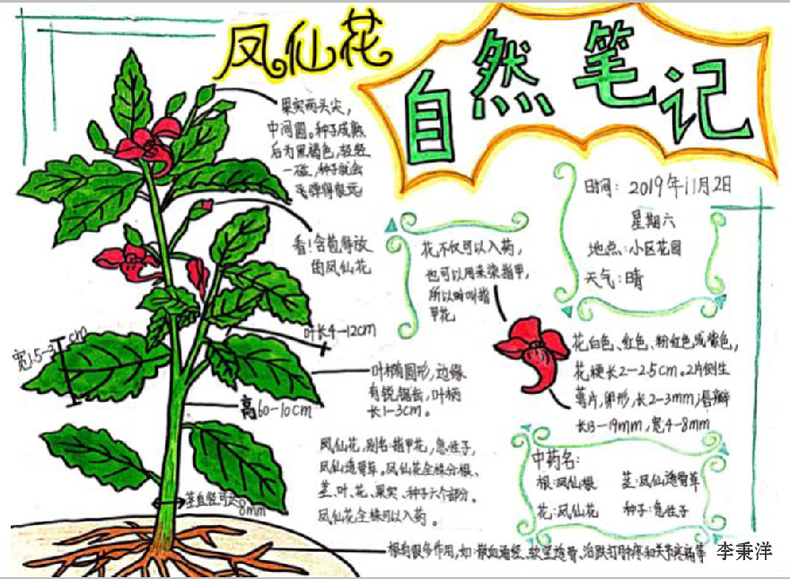 凤仙花
自然笔记
果实两头尖，
中间圆。种子成熟
后为黑褐色，轻轻
一碰，种子就会
弹得很远
时间：2019年11月2日
星期六
地点：小区花园
天气：晴
看！含苞待放
的凤仙花
花不仅可以入药，
也可以用来染指甲，
所以叫指
甲花
叶长4-12cm
宽1.5-3cm
花白色、红色、粉红色或紫色，
花梗长2-2.5cm。2片侧生
萼片，卵形，长2-3mm
长13-19mm，宽4-8mm
叶椭圆形，边缘
有锐锯齿，叶柄
长1-3cm。
高60-10cm
凤仙花，别名：指甲花，急性子，
凤仙透骨草。凤仙花全株分根、
茎、叶、花、果实、种子六个部分。
凤仙花全株可以入药。
中药名：
根：凤仙根 茎：凤仙透骨草
花：凤仙花 种子：急性子
茎直径可达
8mm
根有很多作用，如：
李秉洋